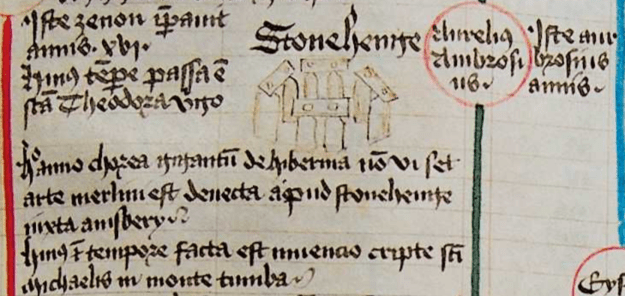 Iste zenon īpavit
annis · xvi ·
huiꝰ tēpe passa ē
scā Theodora vigo
Stonehenge
Aurelius
Ambrosi
us ·
Iste aur
brosius
annis ·
hº anno chorea gigantū de hibernia nō vi set
arte merlini est devecta apud stonehenge
iuxta amsbery
huiꝰ tempore facta est invencio cripte sci
michaelis in monte tumba